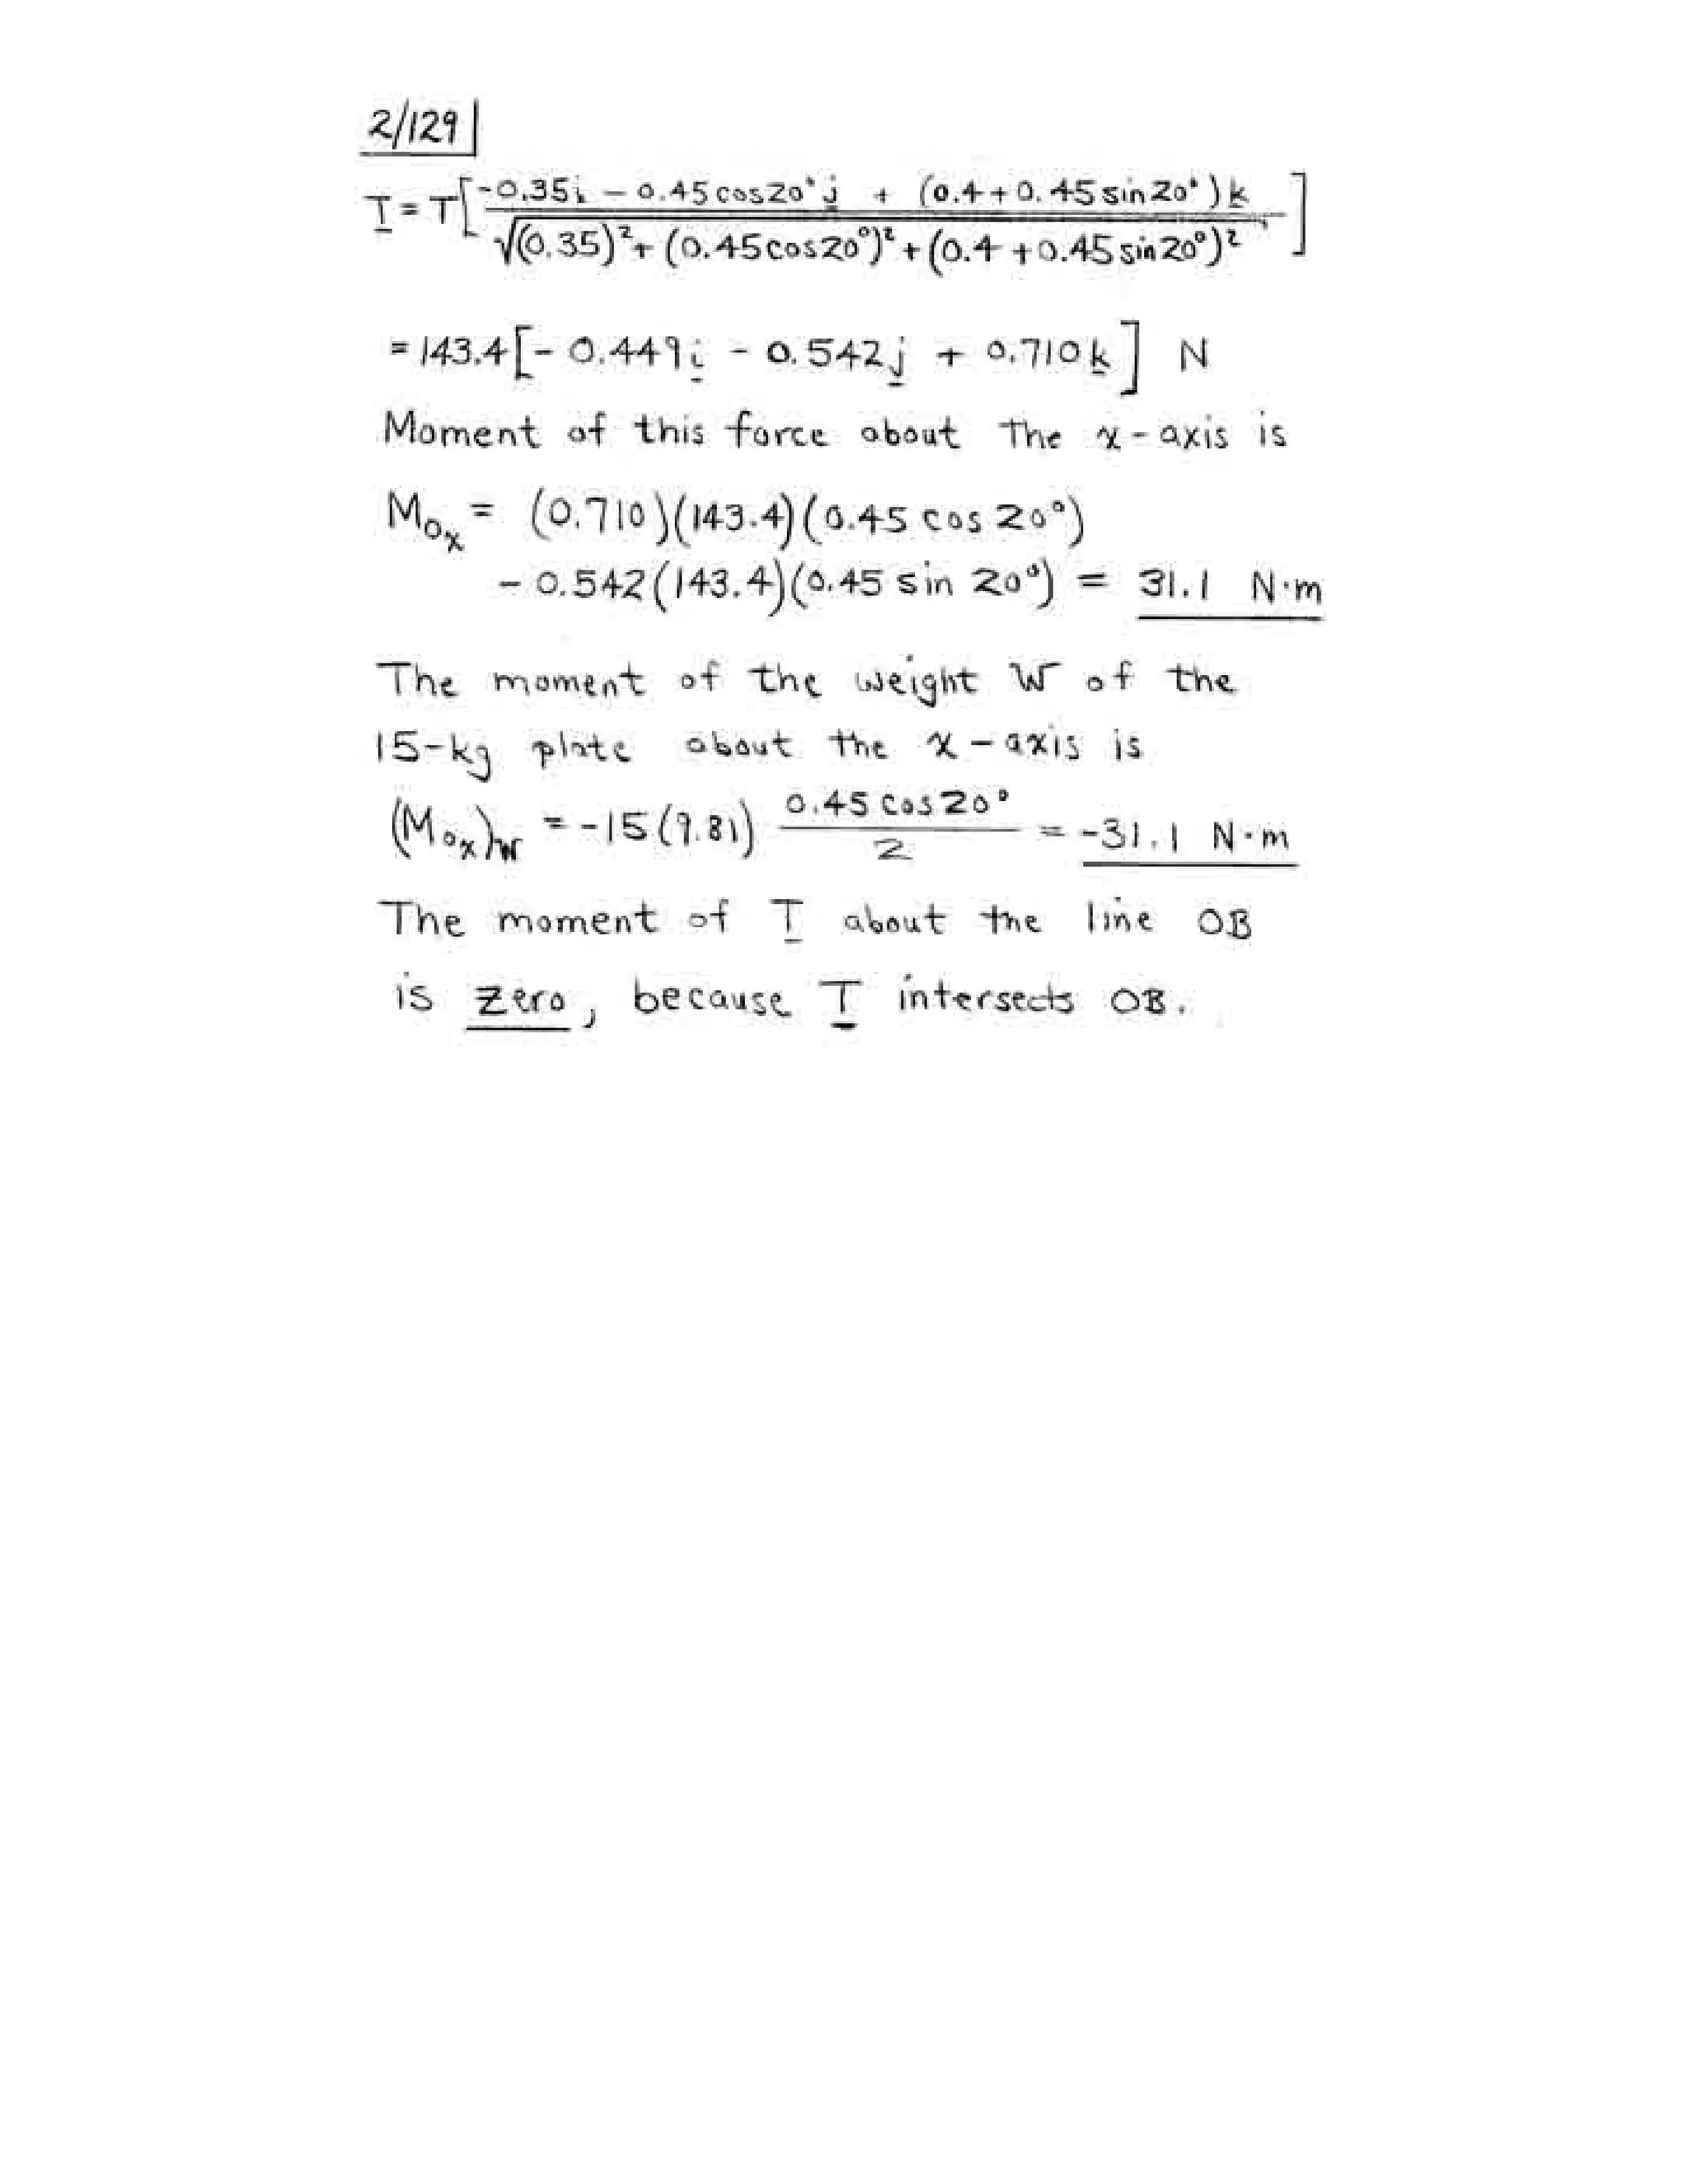 2/129
T = T[ (-0.35i - 0.45 cos20° j + (0.4 + 0.45 sin20°) k) / √((0.35)² + (0.45cos20°)² + (0.4 + 0.45 sin20°)²) ]
= 143.4 [- 0.449i - 0.542j + 0.710k] N
Moment of this force about the x-axis is
M_Ox = (0.710)(143.4)(0.45 cos 20°)
- 0.542(143.4)(0.45 sin 20°) = 31.1 N·m
The moment of the weight W of the
15-kg plate about the x-axis is
(M_Ox)_W = -15(9.81) (0.45 cos 20°)/2 = -31.1 N·m
The moment of T about the line OB
is zero, because T intersects OB.